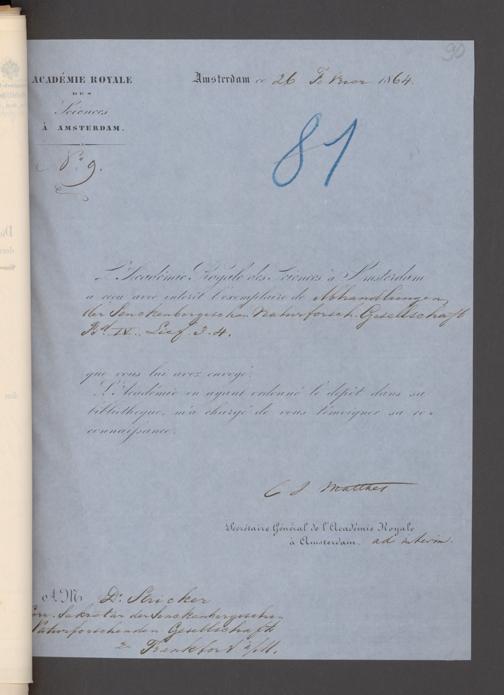 90
ACADÉMIE ROYALE
DES
Sciences
À AMSTERDAM.
N.º 9.
Amsterdam ce 26 1864.
81
L'Académie Royale des Sciences à Amsterdam
a reçu avec intérêt l'exemplaire de Abhandlungen
der Senckenbergischen Naturforsch. Gesellschaft
Bd IX. Lief. 3-4.
que vous lui avez envoyé.
L'Académie en ayant ordonné le dépôt dans sa
bibliothèque, m'a chargé de vous témoigner sa re-
connaissance.
C J Matthes
Secrétaire Général de l'Académie Royale
à Amsterdam. ad interim.
A M Dr. Stricker
Sekretär der Senckenbergischen
Naturforschenden Gesellschaft
Frankfort a/M.